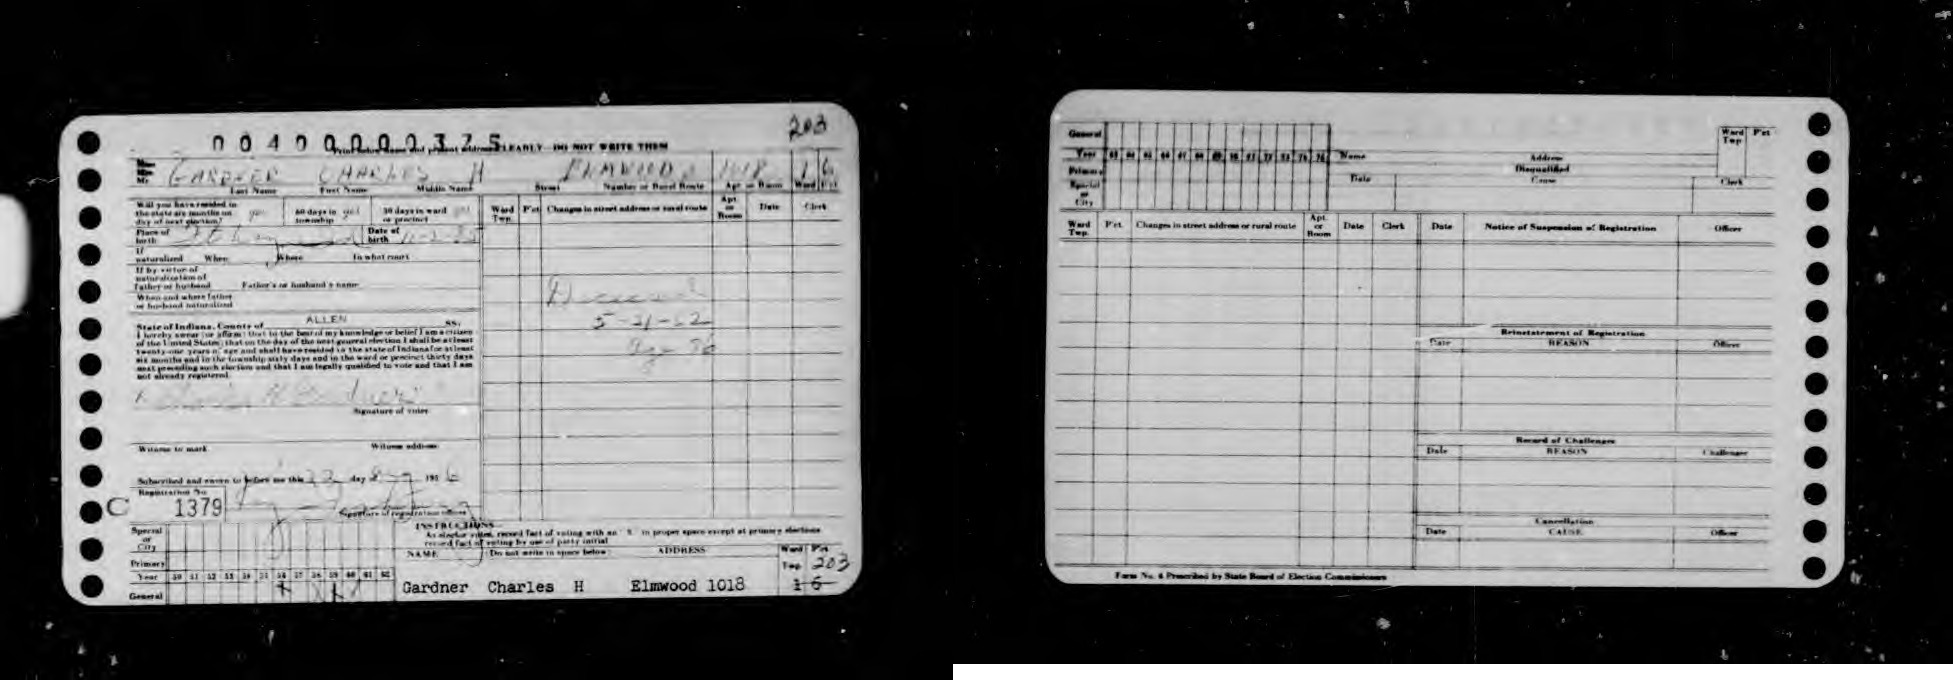 203
00400000375
Print below name and present address CLEARLY—DO NOT WRITE THEM
Mr. GARDNER CHARLES H ELMWOOD 1018 1 6
Last Name First Name Middle Name Street Number or Rural Route Apt. or Room Ward Pct
Will you have resided in
the state six months on yes 60 days in yes 30 days in ward yes
day of next election? township or precinct
Ward Twp. P'ct. Changes in street address or rural route Apt. or Room Date Clerk
Place of birth Ft Wayne Ind Date of birth
If
naturalized When Where In what court
If by virtue of
naturalization of
Father or husband Father's or husband's name
When and where father
or husband naturalized
Deceased
5-21-62
age 76
State of Indiana, County of ALLEN SS:
I hereby swear (or affirm) that to the best of my knowledge or belief I am a citizen
of the United States; that on the day of the next general election I shall be at least
twenty-one years of age and shall have resided in the state of Indiana for at least
six months and in the township sixty days and in the ward or precinct thirty days
next preceding such election and that I am legally qualified to vote and that I am
not already registered.
X Charles H Gardner
Signature of voter
Witness to mark Witness address
Subscribed and sworn to before me this 22 day Aug 1956
Registration No.
C 1379
Signature of registration officer
INSTRUCTIONS
As elector votes, record fact of voting with an "X" in proper space except at primary elections
record fact of voting by use of party initial
Special
or
City
Primary
Year 50 51 52 53 54 55 56 57 58 59 60 61 62
General X X X X
NAME (Do not write in space below) ADDRESS Ward Twp. P'ct.
203
Gardner Charles H Elmwood 1018 1 6
General
Year 63 64 65 66 67 68 69 70 71 72 73 74 75
Primary
Special
or
City
Name Address Ward Twp P'ct
Disqualified
Date Cause Clerk
Ward Twp. P'ct. Changes in street address or rural route Apt. or Room Date Clerk
Date Notice of Suspension of Registration Officer
Reinstatement of Registration
Date REASON Officer
Record of Challenges
Date REASON Challenger
Cancellation
Date CAUSE Officer
Form No. 4 Prescribed by State Board of Election Commissioners